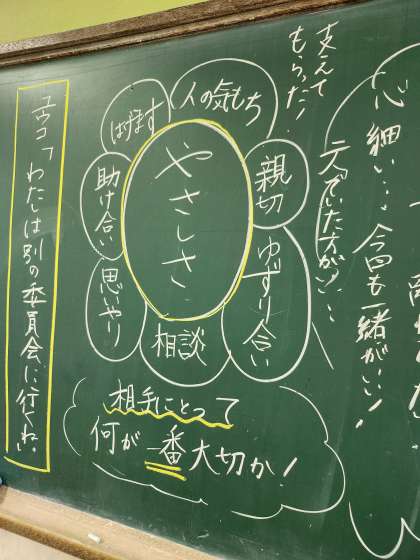 心細い…
今回も一緒がいい!
支えて
もらった!
人の気もち
はげます
親切
助け合い
やさしさ
ゆずり合い
思いやり
相談
相手にとって
何が一番大切か!
ユウコ「わたしは別の委員会に行くね。」